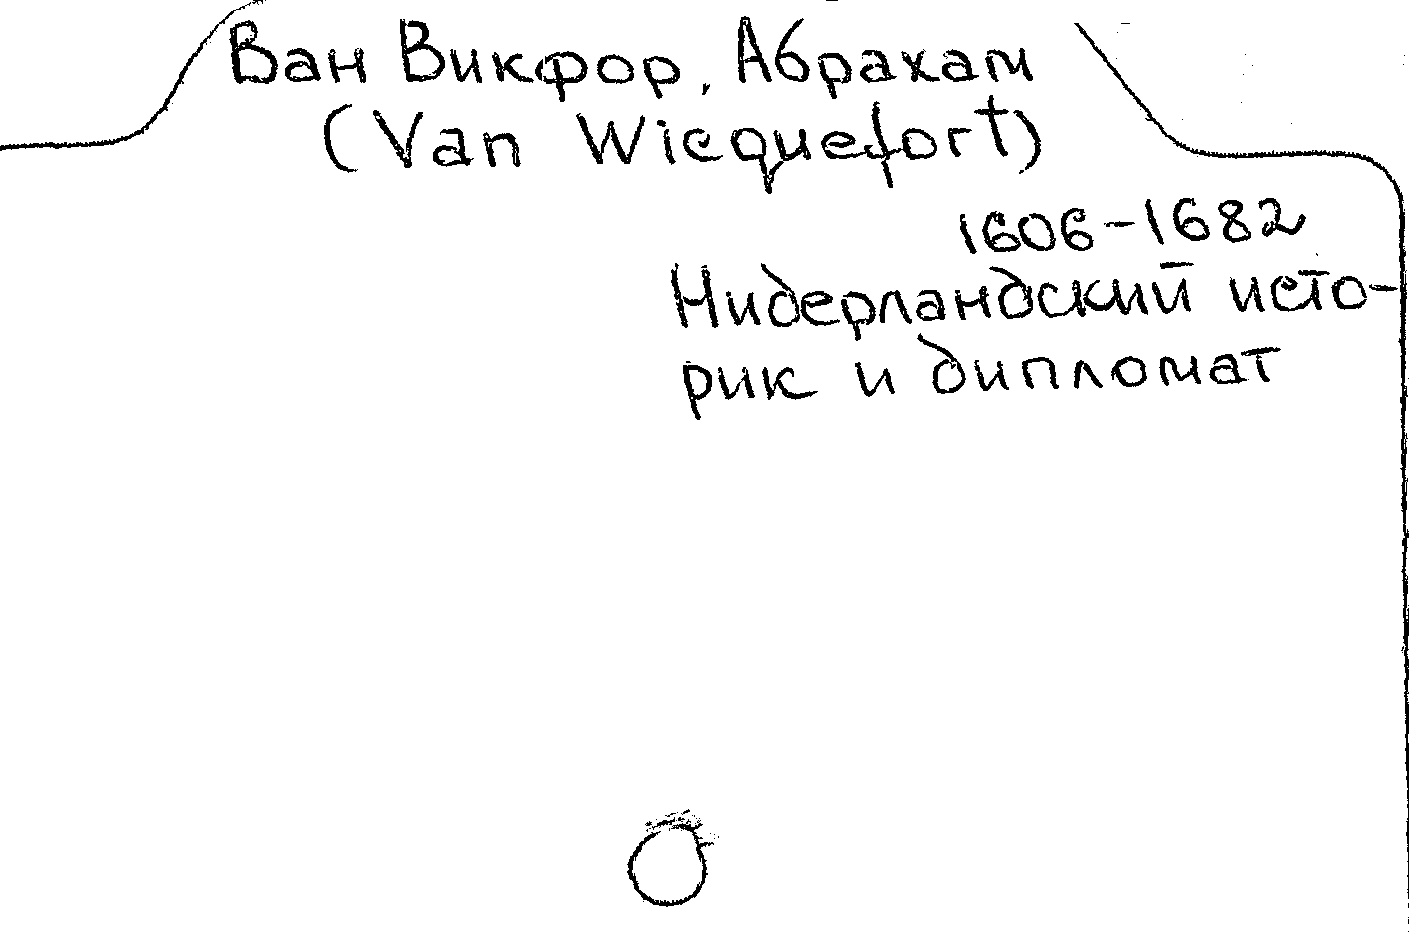 Ван Викфор, Абрахам
(Van Wicquefort)
1606-1682
Нидерландский исто-
рик и дипломат